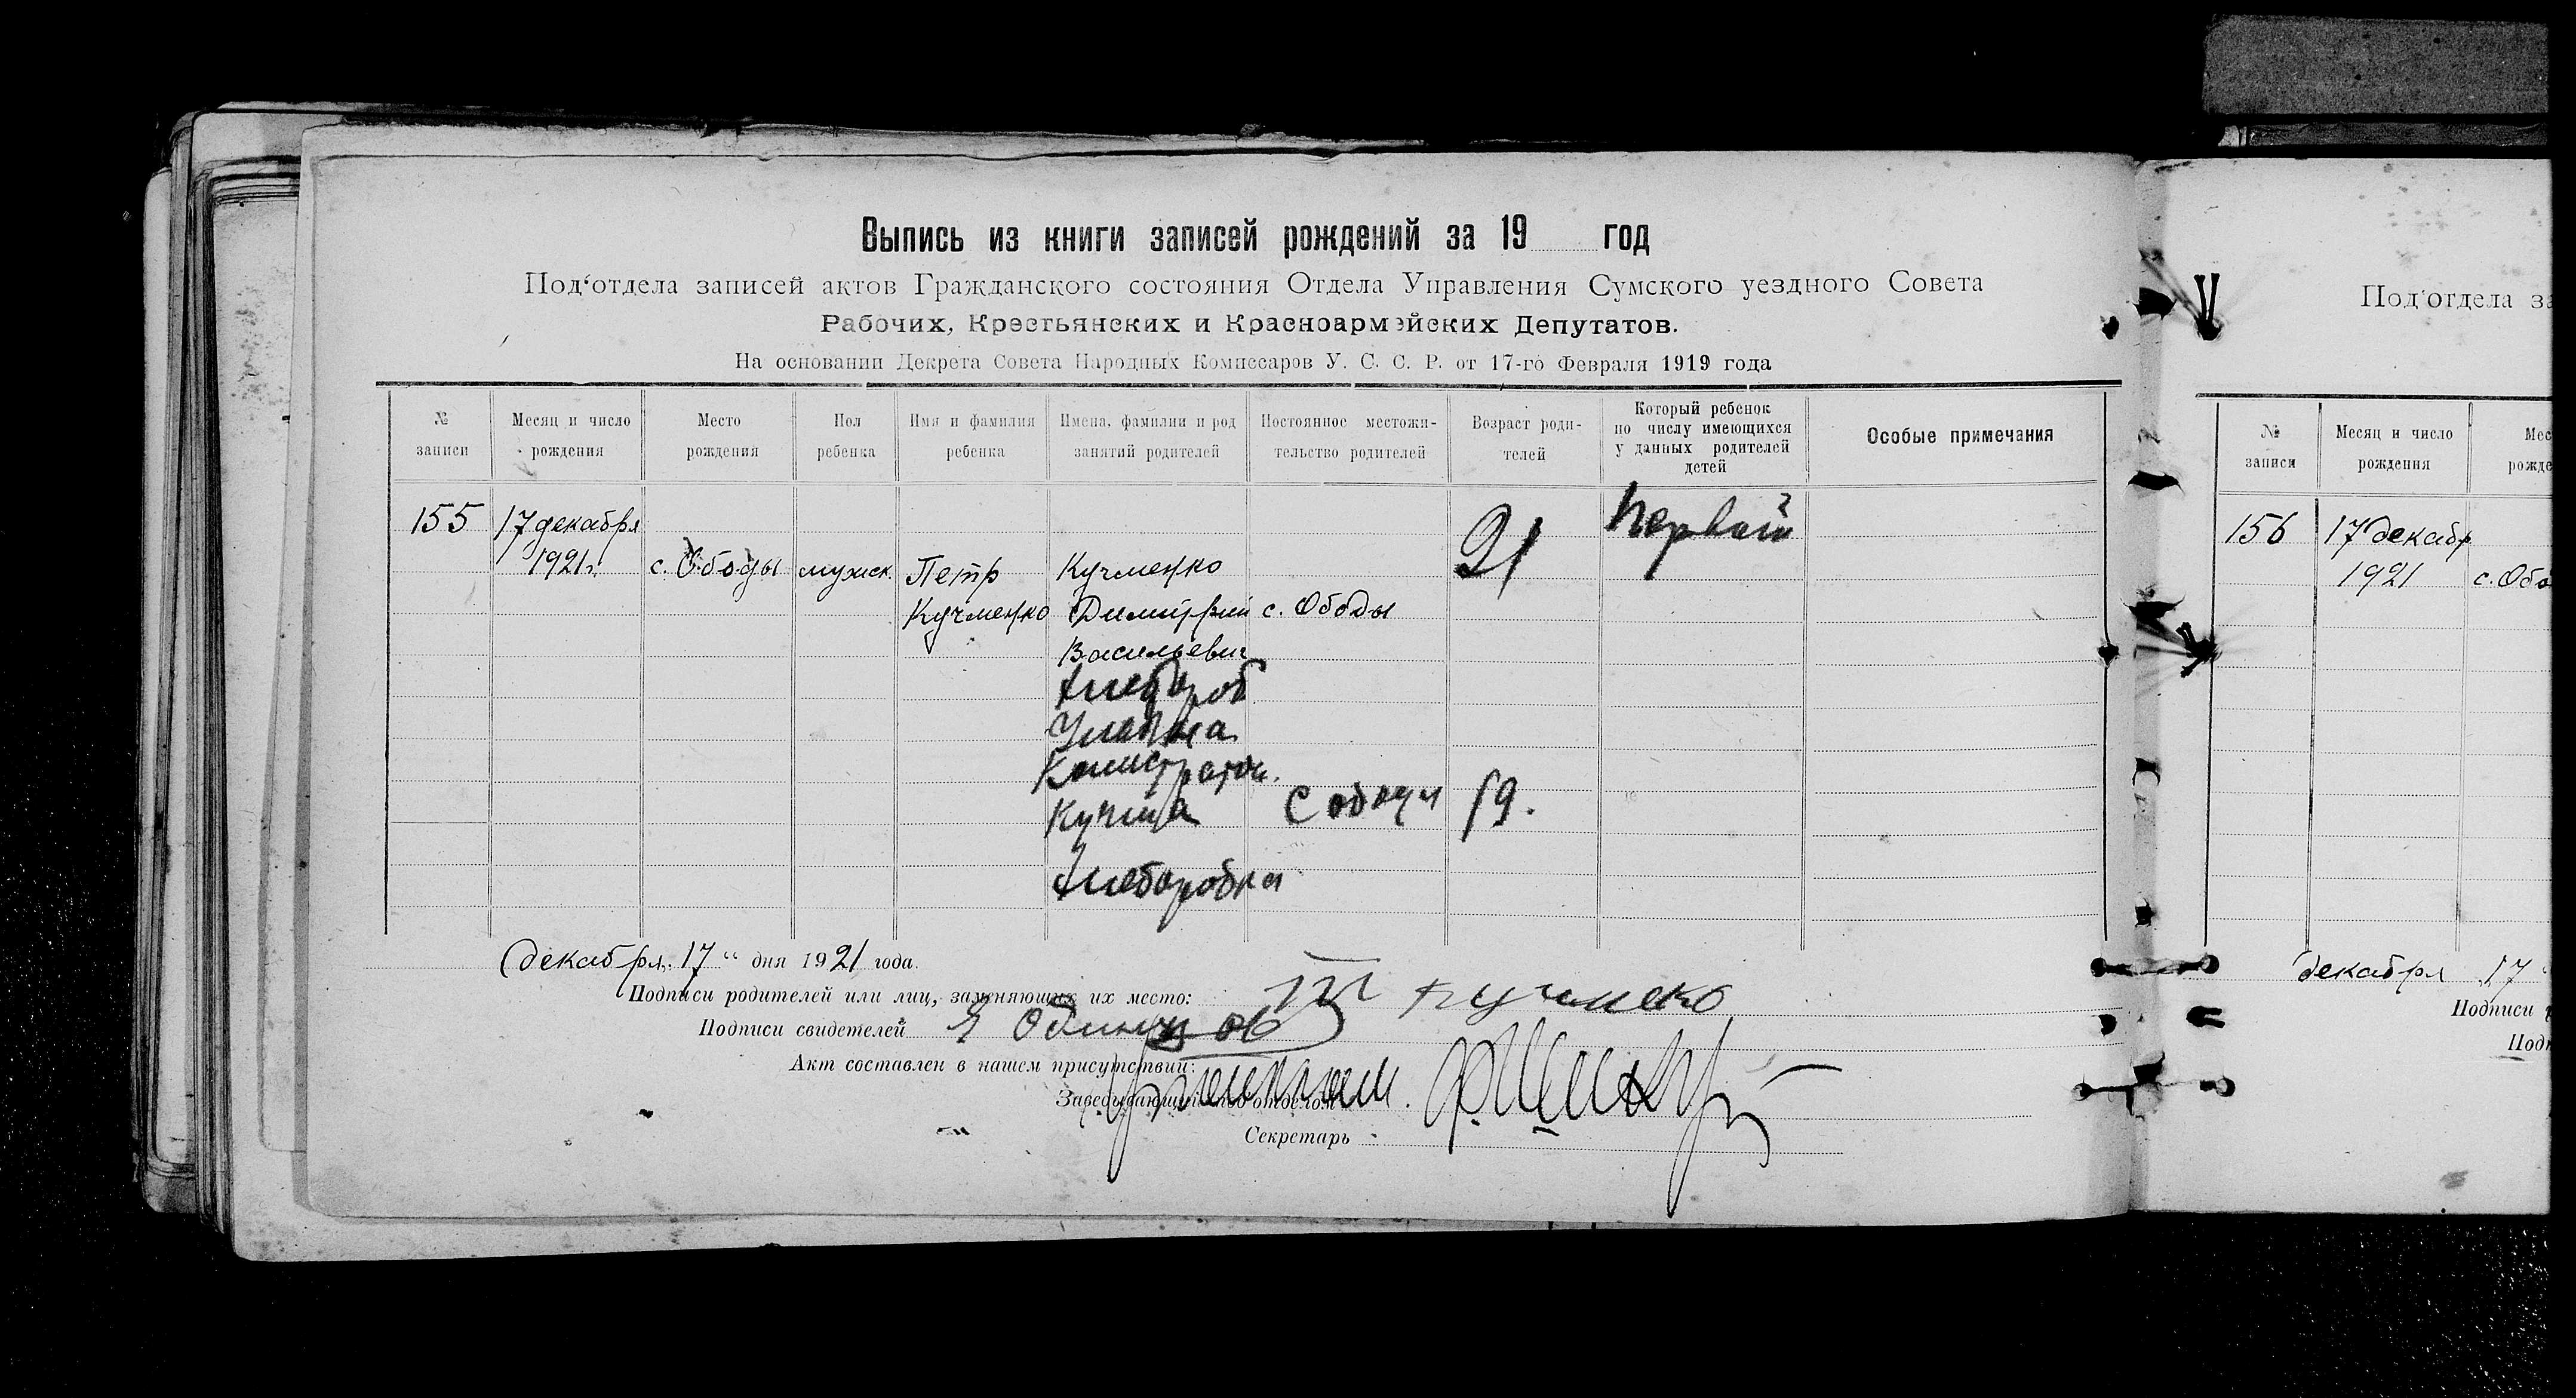 Выпись из книги записей рождений за 19 год
Под'отдела записей актов Гражданского состояния Отдела Управления Сумского уездного Совета
Рабочих, Крестьянских и Красноармейских Депутатов.
На основании Декрета Совета Народных Комиссаров У. С. С. Р. от 17-го Февраля 1919 года
№ записи
Месяц и число рождения
Место рождения
Пол ребенка
Имя и фамилия ребенка
Имена, фамилии и род занятий родителей
Постоянное местожительство родителей
Возраст родителей
Который ребенок по числу имеющихся у данных родителей детей
Особые примечания
155
17 декабря
1921 г.
с. Ободы
мужск.
Петр
Кучменко
Кучменко
Димитрий
Васильевич
хлебороб
с. Ободы
21
первый
Кучма
с ободы
19.
хлеборобка
декабря 17 " дня 1921 года.
Подписи родителей или лиц, заменяющих их место:
Кучменко
Подписи свидетелей
Акт составлен в нашем присутствии:
Заведывающий под'отделом
Секретарь
Под'отдела
№ записи
Месяц и число рождения
156
17 декабр
1921
с. Обо
декабря 17
Подписи